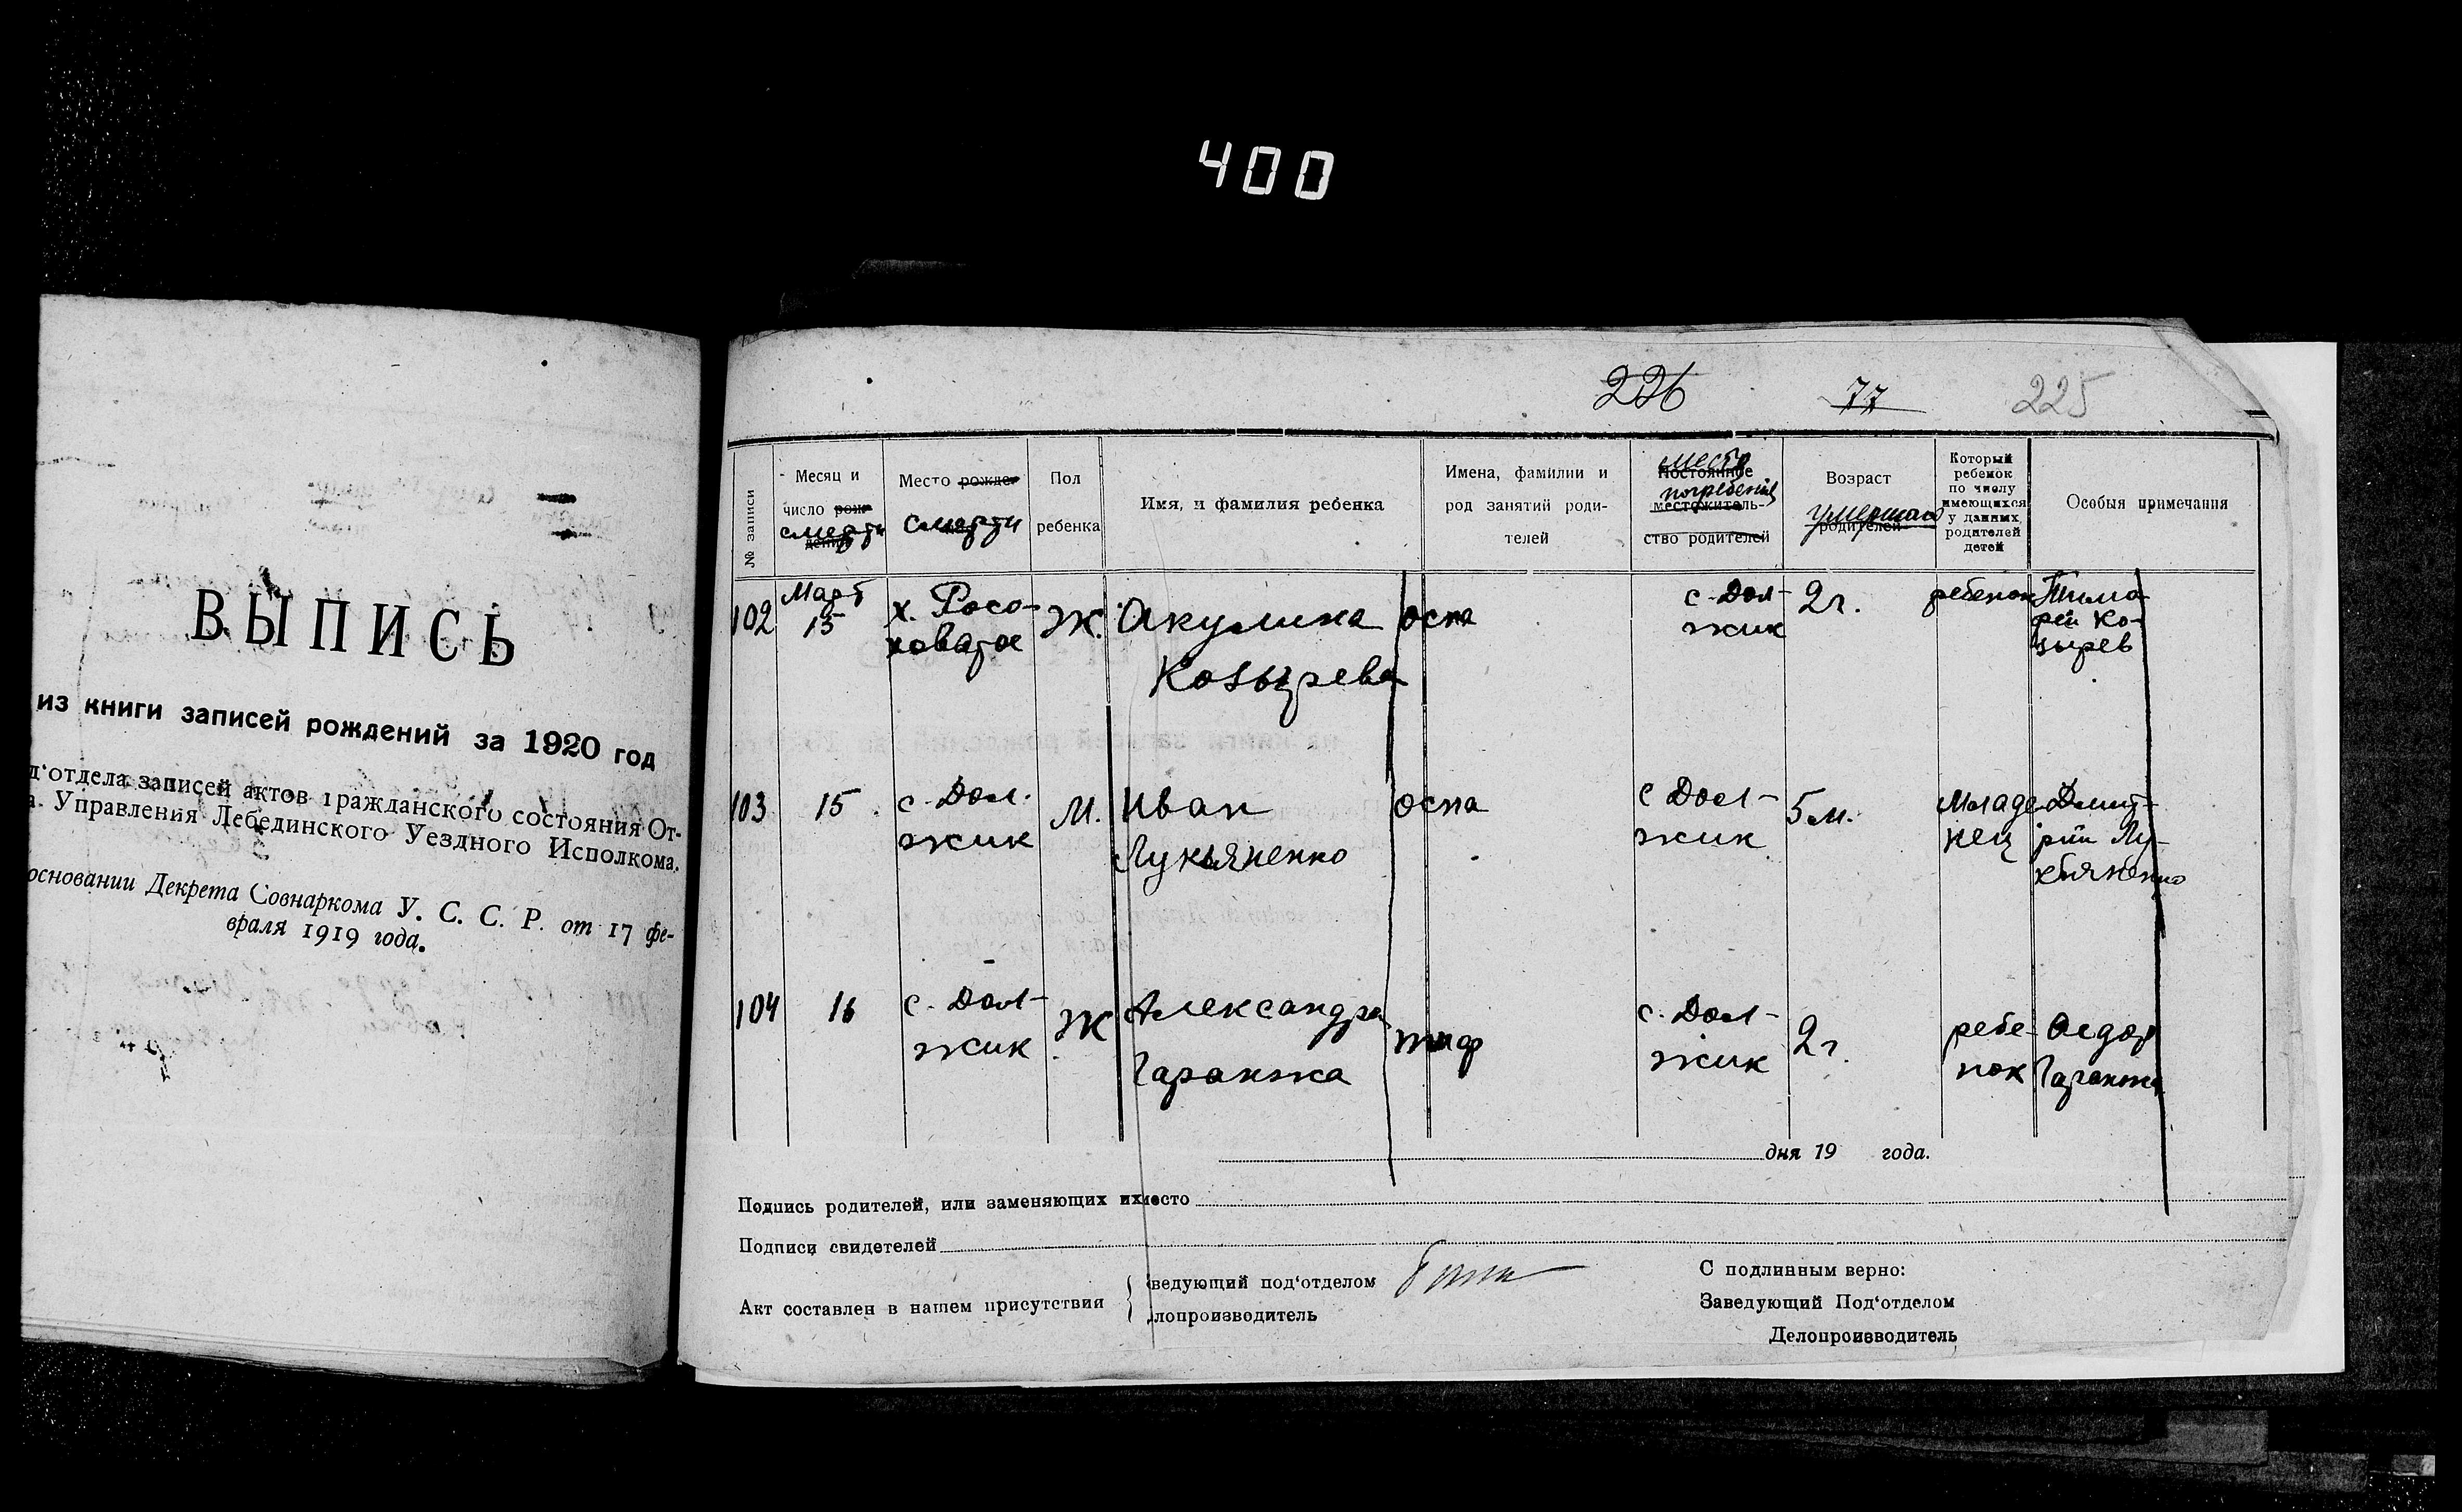 400
ВЫПИСЬ
из книги записей рождений за 1920 год
д'отдела записей актов гражданского состояния От-
а Управления Лебединского Уездного Исполкома.
основании Декрета Совнаркома У. С. С. Р. от 17 фе-
враля 1919 года.
226 77 225
№ записи
Месяц и
число рож-
дения
смерти
Место рожде-
смерти
Пол
ребенка
Имя, и фамилия ребенка
Имена, фамилии и
род занятий роди-
телей
место
Постоянное
погребения
местожитель-
ство родителей
Возраст
умершаго
родителей
Который
ребенок
по числу
имеющихся
у данных
родителей
детей
Особыя примечания
102
Март
15
х. Росо-
ховатое
Ж.
Акулина
Козырева
оспа
с. Дол-
жик
2 г.
ребенок
Тимо-
фей Ко-
зырев
103
15
с. Дол-
жик
М.
Иван
Лукьяненко
оспа
с Дол-
жик
5 м.
Младе-
нец
Дмит-
рий Лу-
кьяненко
104
16
с. Дол-
жик
Ж.
Александра
Гаранжа
тиф
с. Дол-
жик
2 г.
ребе-
нок
Федор
Гаранжа
дня 19 года.
Подпись родителей, или заменяющих их место
Подписи свидетелей
Акт составлен в нашем присутствии
ведующий под'отделом
лопроизводитель
С подлинным верно:
Заведующий Под'отделом
Делопроизводитель